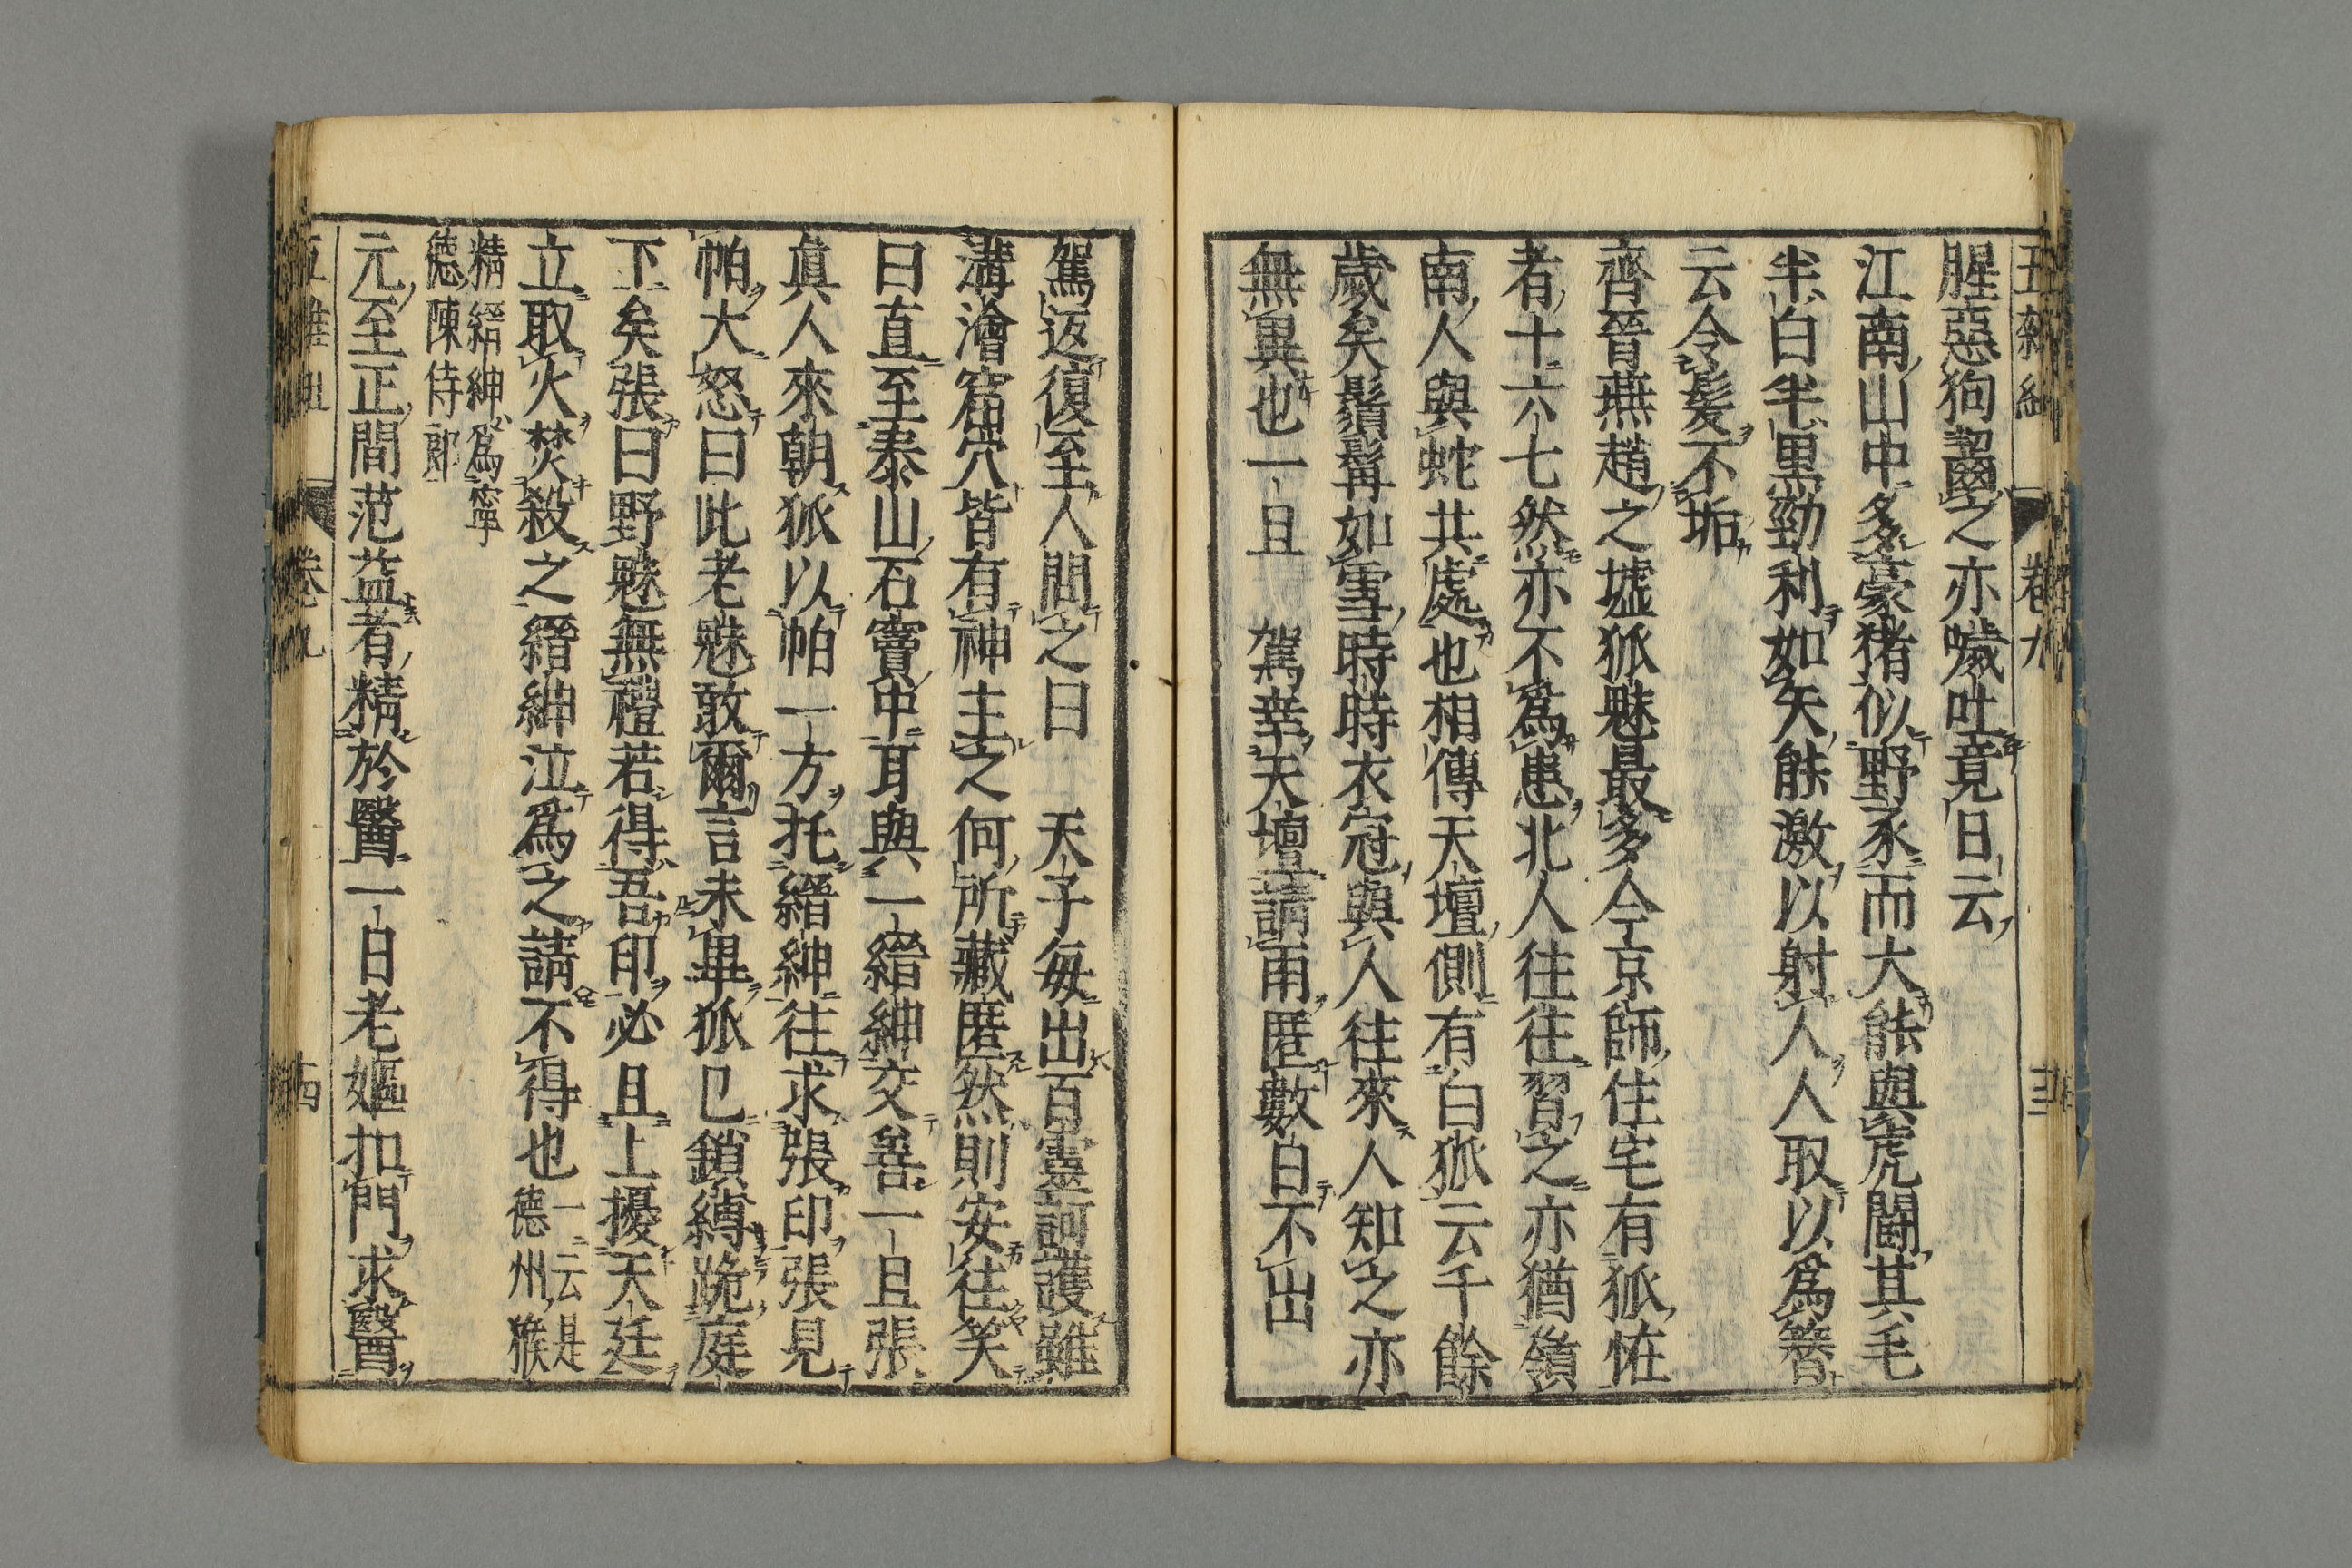 五雜組 卷九
腥惡狗齧之亦噦吐竟日云
江南山中多豪猪似野豕而大能與虎鬪其毛
半白半黒勁利如矢能激以射人人取以爲簪
云令髪不垢
齊晉燕趙之墟狐魅最多今京師住宅有狐恠
者十六七然亦不爲患北人往往習之亦猶嶺
南人與蛇共處也相傳天壇側有白狐云千餘
歲矣鬚髯如雪時時衣冠與人往來人知之亦
無異也一旦　駕幸天壇請雨匿數日不出
駕返復至人問之曰　天子每出百靈訶護雖
溝澮窟穴皆有神主之何所藏匿然則安往笑
曰直至泰山石竇中耳與一縉紳交善一旦張
眞人來朝狐以帕一方托縉紳往求張印張見
帕大怒曰此老魅敢爾言未畢狐已鎖縛跪庭
下矣張曰野魅無禮若得吾印必且上擾天廷
立取火焚殺之縉紳泣爲之請不得也
一云是
德州猴
精縉紳爲寧
德陳侍郎
元至正間范益者精於醫一日老嫗扣門求醫
五雜組 卷九 十四